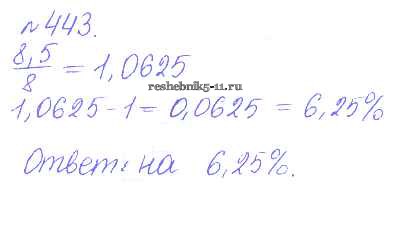 №443.
8,5/8 = 1,0625
reshebnik5-11.ru
1,0625-1 = 0,0625 = 6,25%
Ответ: на 6,25%.